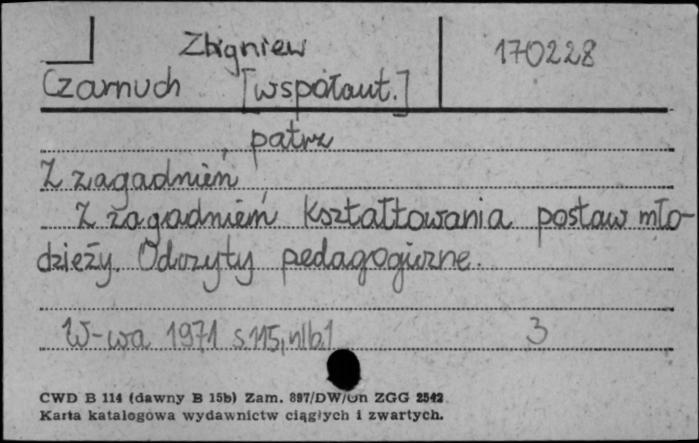 Zbigniew 170228
Czarnuch [współaut.]
patrz
Z zagadnień
Z zagadnień kształtowania postaw mło-
dzieży. Odczyty pedagogiczne.
W-wa 1971 s.115, nlb.1 3
CWD B 114 (dawny B 15b) Zam. 897/DW/Un ZGG 2542
Karta katalogowa wydawnictw ciągłych i zwartych.